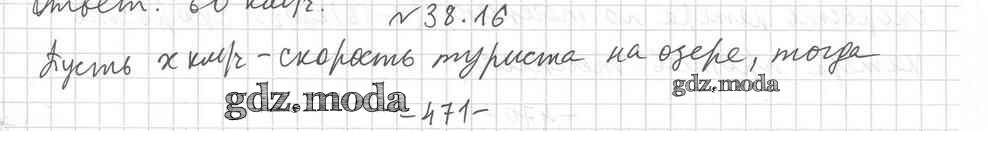 Ответ: 60 км/ч.
№38.16
Пусть x км/ч - скорость туриста на озере, тогда
gdz.moda
gdz.moda
-471-